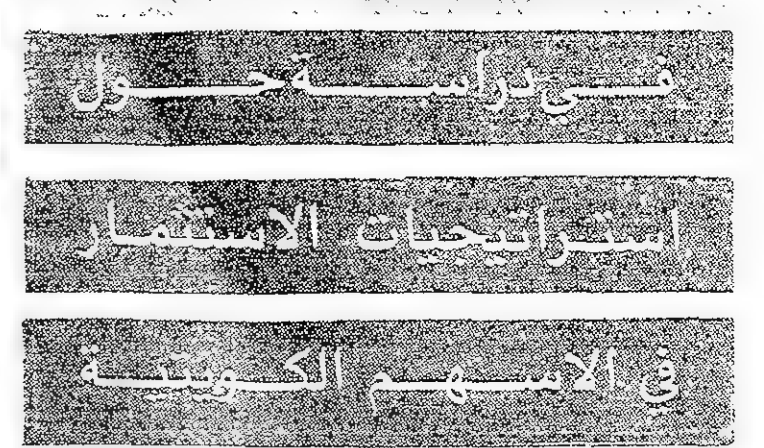 في دراسة حول
استراتيجيات الاستثمار
في الاسهم الكويتية